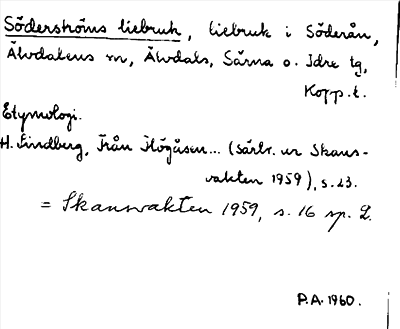 Söderströms liebruk, liebruk i Söderån,
Älvdalens m, Älvdals, Särna o. Idre tg,
Kopp. l.
Etymologi.
H. Lindberg, Från Högåsen... (särtr. ur Skans-
vakten 1959), s. 23.
= Skansvakten 1959, s. 16 sp. 2.
P.A. 1960.